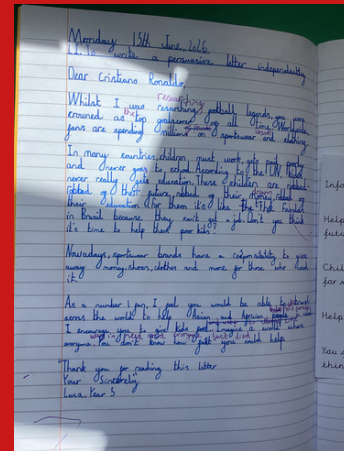 Monday 15th June, 2026
LI: To write a persuasive letter independently
Dear Cristiano Ronaldo,
researching
Whilst I was researching football legends, you were
crowned as the top goalscorer of all time. Worldwide,
fans are spending millions on sportswear and
In many countries, children must work, gets paid poorly
and never goes to school. According to the UN, kids
never really gets education. These children are robbed
robbed of their future, robbed of their money, robbed of
their education. For them it's like the
in Brazil because they can't get a job. Don't you think
it's time to help them poor kids?
Nowadays, sportswear brands have a responsibility to give
away money, shoes, clothes and more for those who need
it.
As a number 1 fan, I feel you would be able to
across the world to help Asian and African
I encourage you to give kids Imagine a world where
everyone. You don't know how you could help
Thank you for reading this letter
Your Sincerely
Luca, Year 5
Info
Help
futu
Chil
for
Help
You
thin